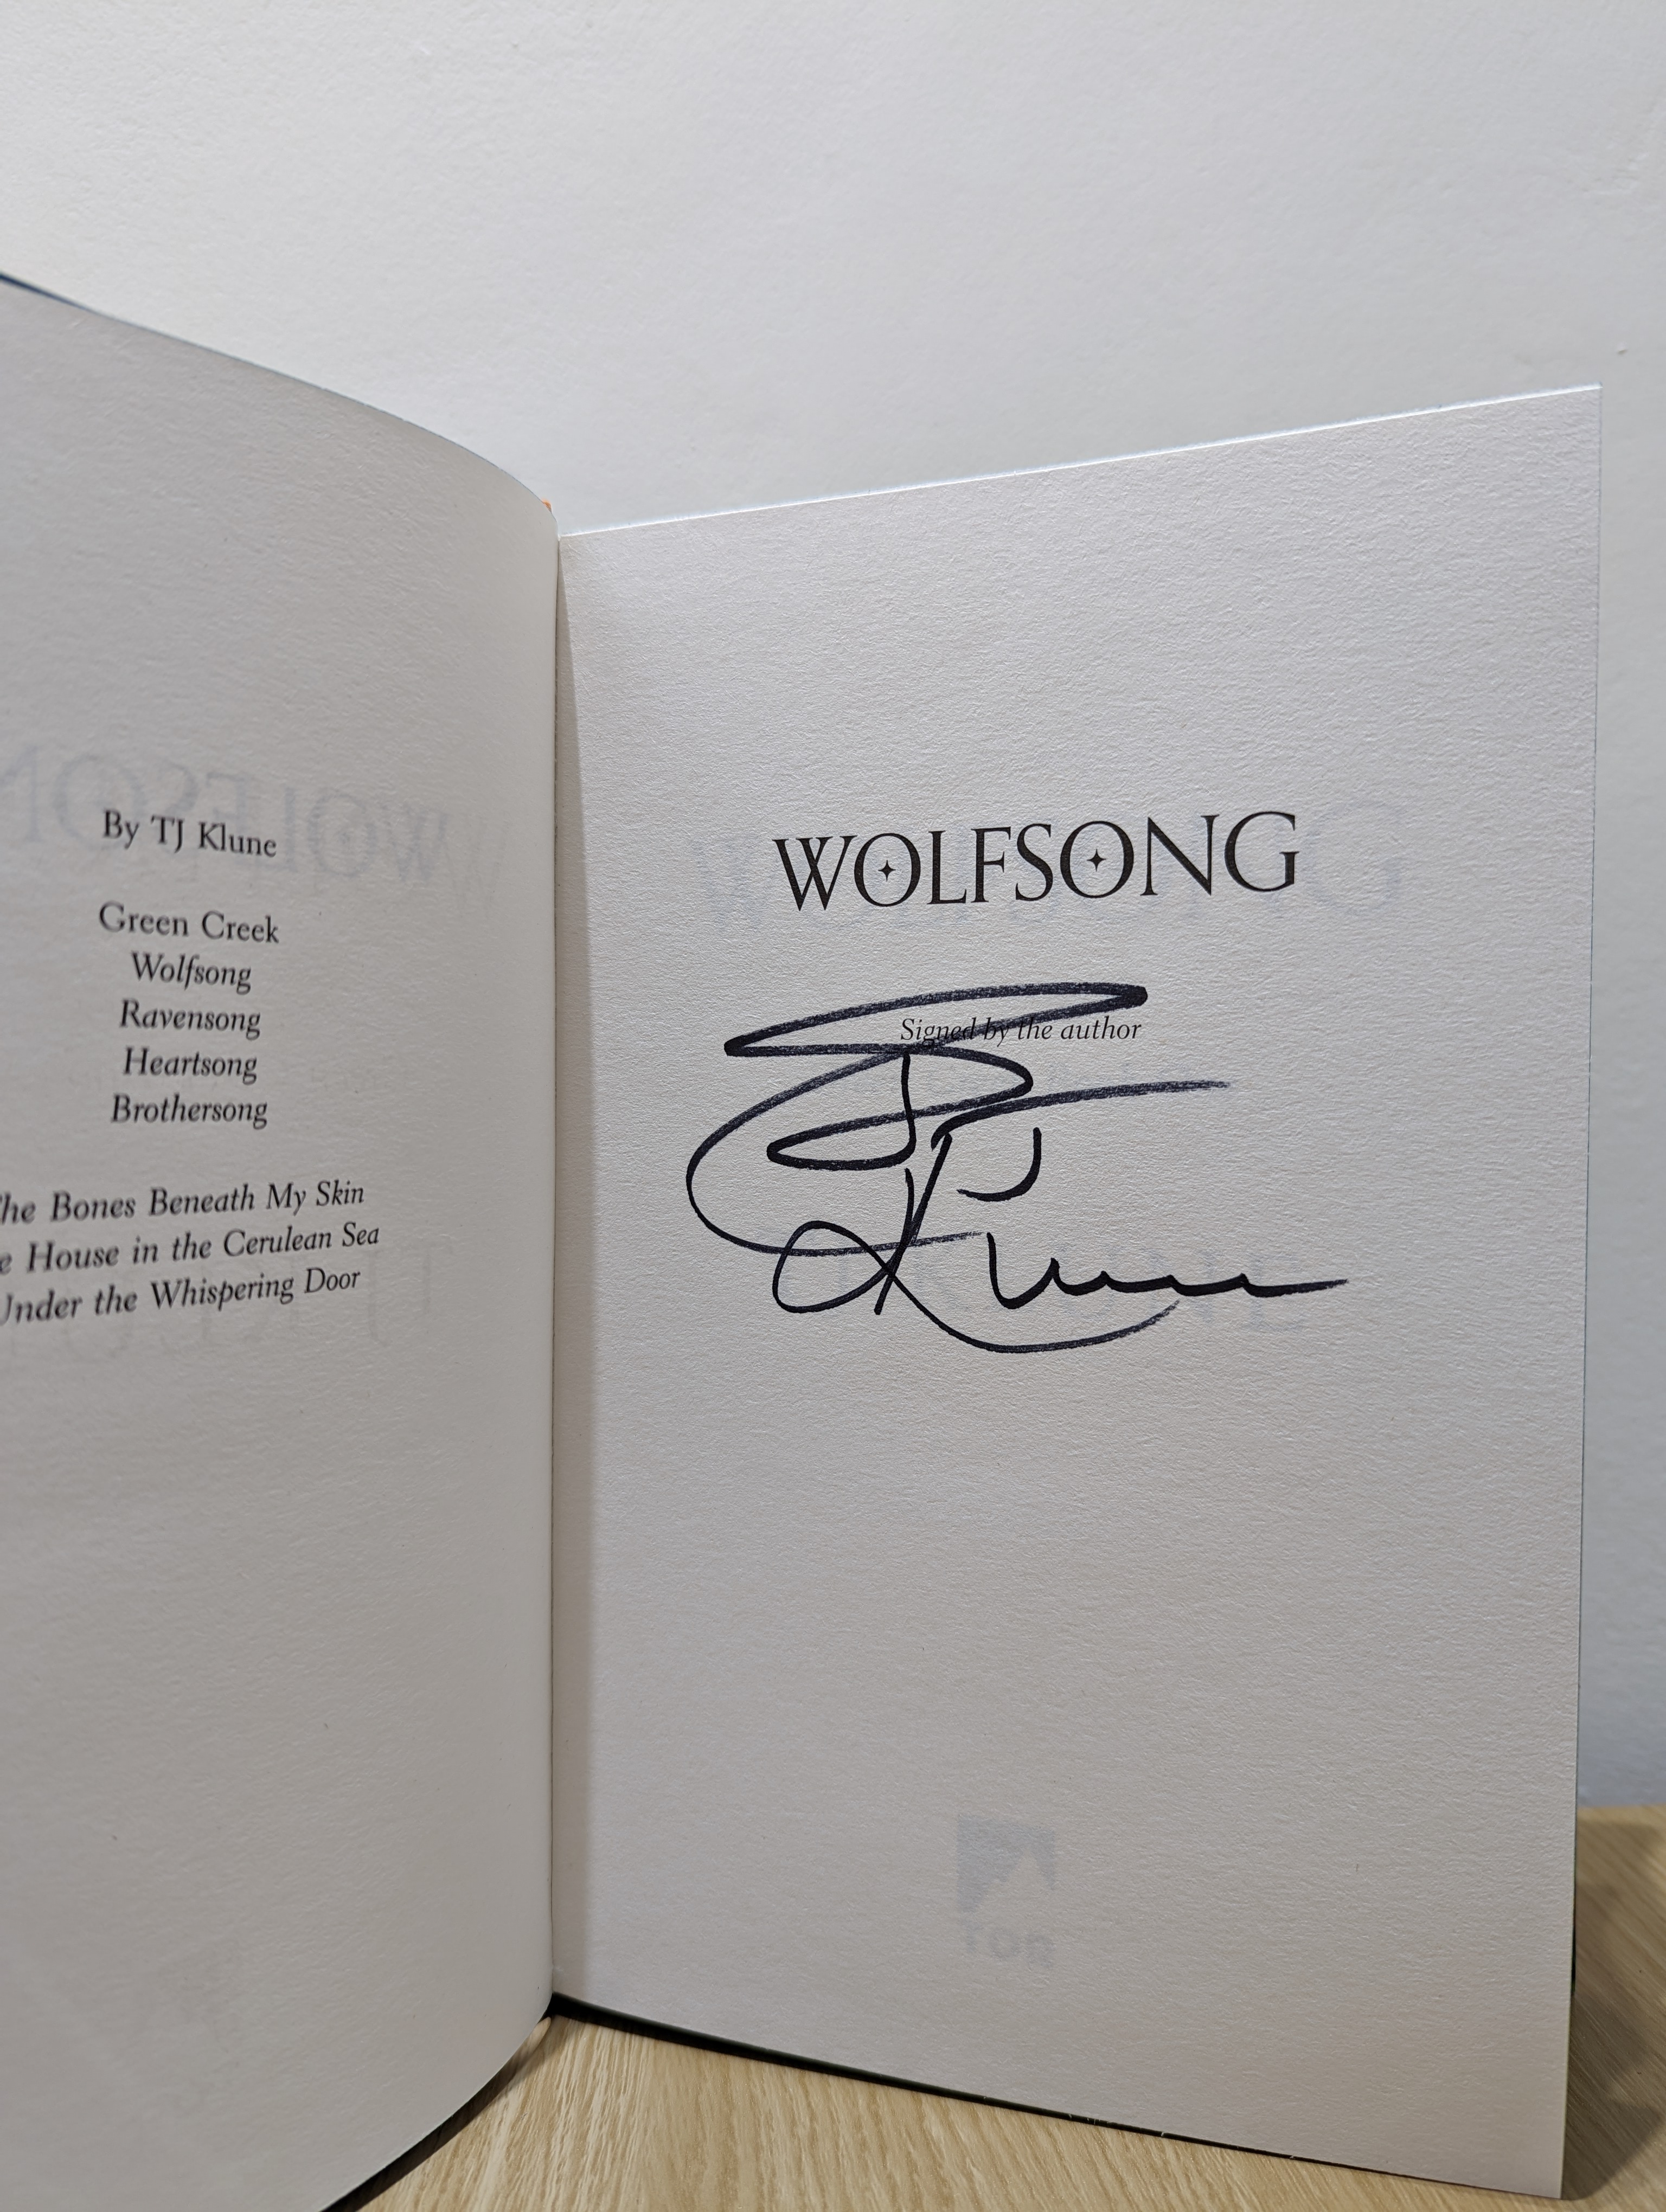 By TJ Klune
Green Creek
Wolfsong
Ravensong
Heartsong
Brothersong
The Bones Beneath My Skin
House in the Cerulean Sea
Under the Whispering Door
WOLFSONG
Signed by the author
TJ Klune